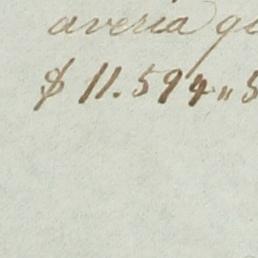 averia g
$ 11.594„5